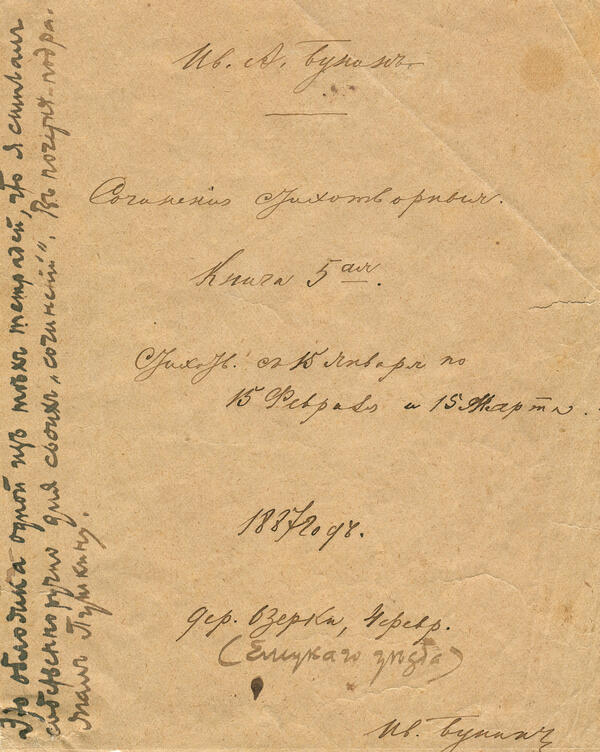 Ив. А. Бунинъ.
Сочиненія Стихотворныя.
Книга 5ая.
Стихотв. съ 15 Января по
15 Февраля и 15 Марта.
1887 годъ.
дер. Озерки, 4 февр.
(Елецкаго уѣзда)
Ив. Бунинъ
Это обложка одной изъ тѣхъ тетрадей, что я сшивалъ
собственноручно для своихъ "сочиненій". Въ почеркѣ – подра-
жалъ Пушкину.